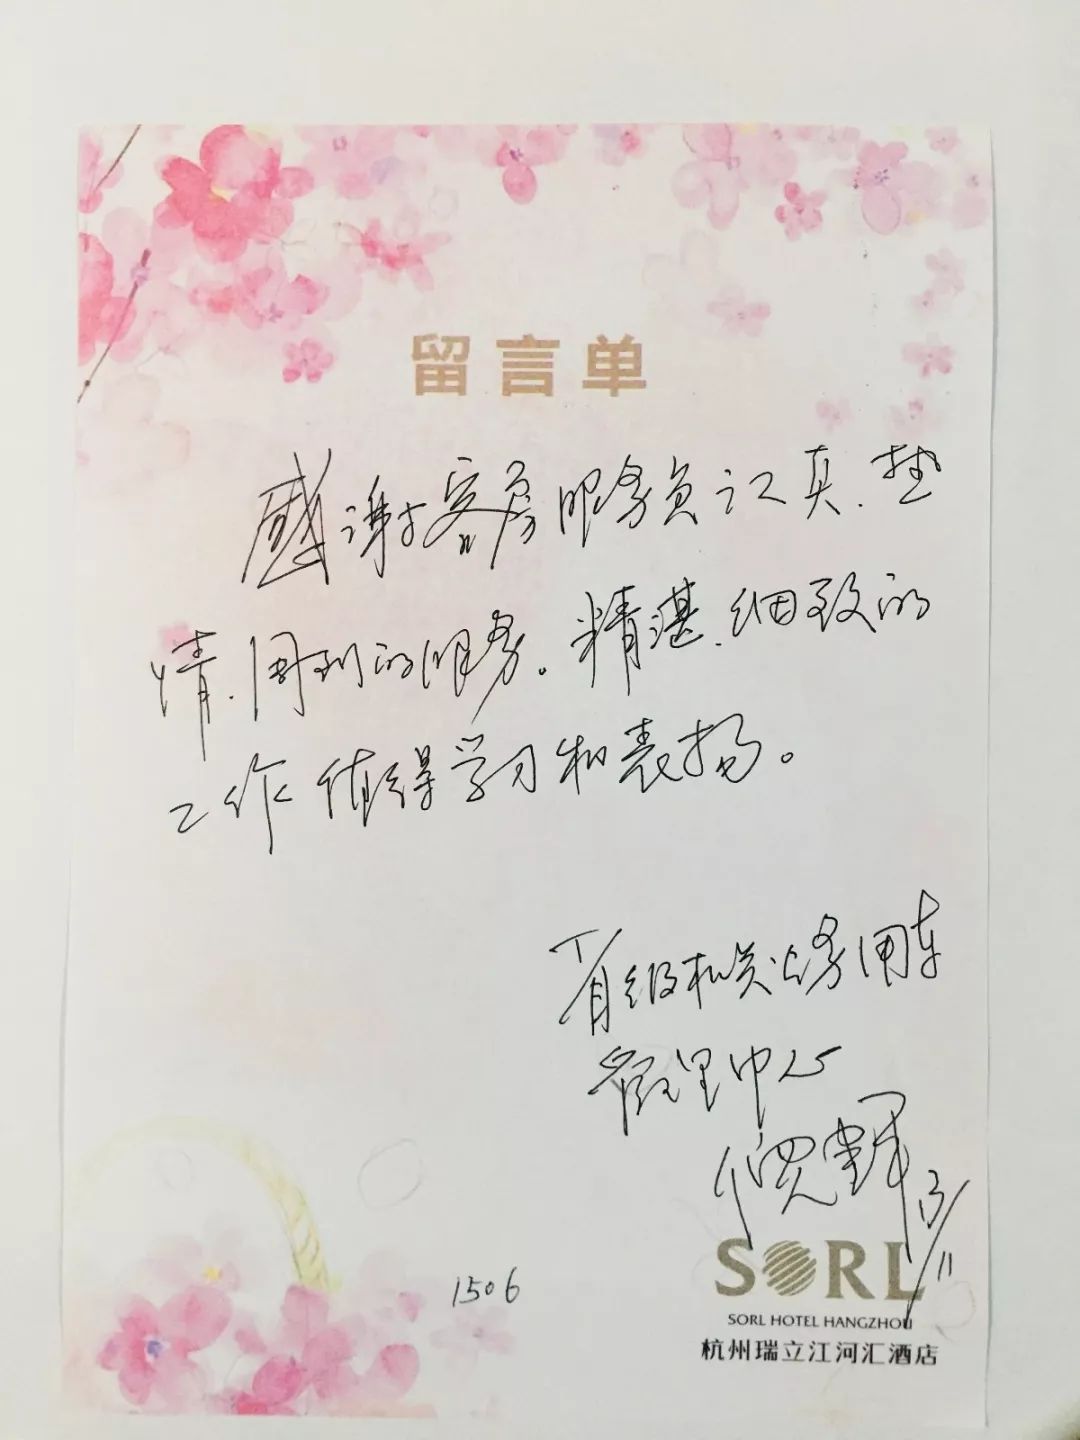 留言单
感谢客房服务员认真、热
情、周到的服务。精湛、细致的
工作值得学习和表扬。
省级机关公务用车
管理中心
1506
SORL
SORL HOTEL HANGZHOU
杭州瑞立江河汇酒店